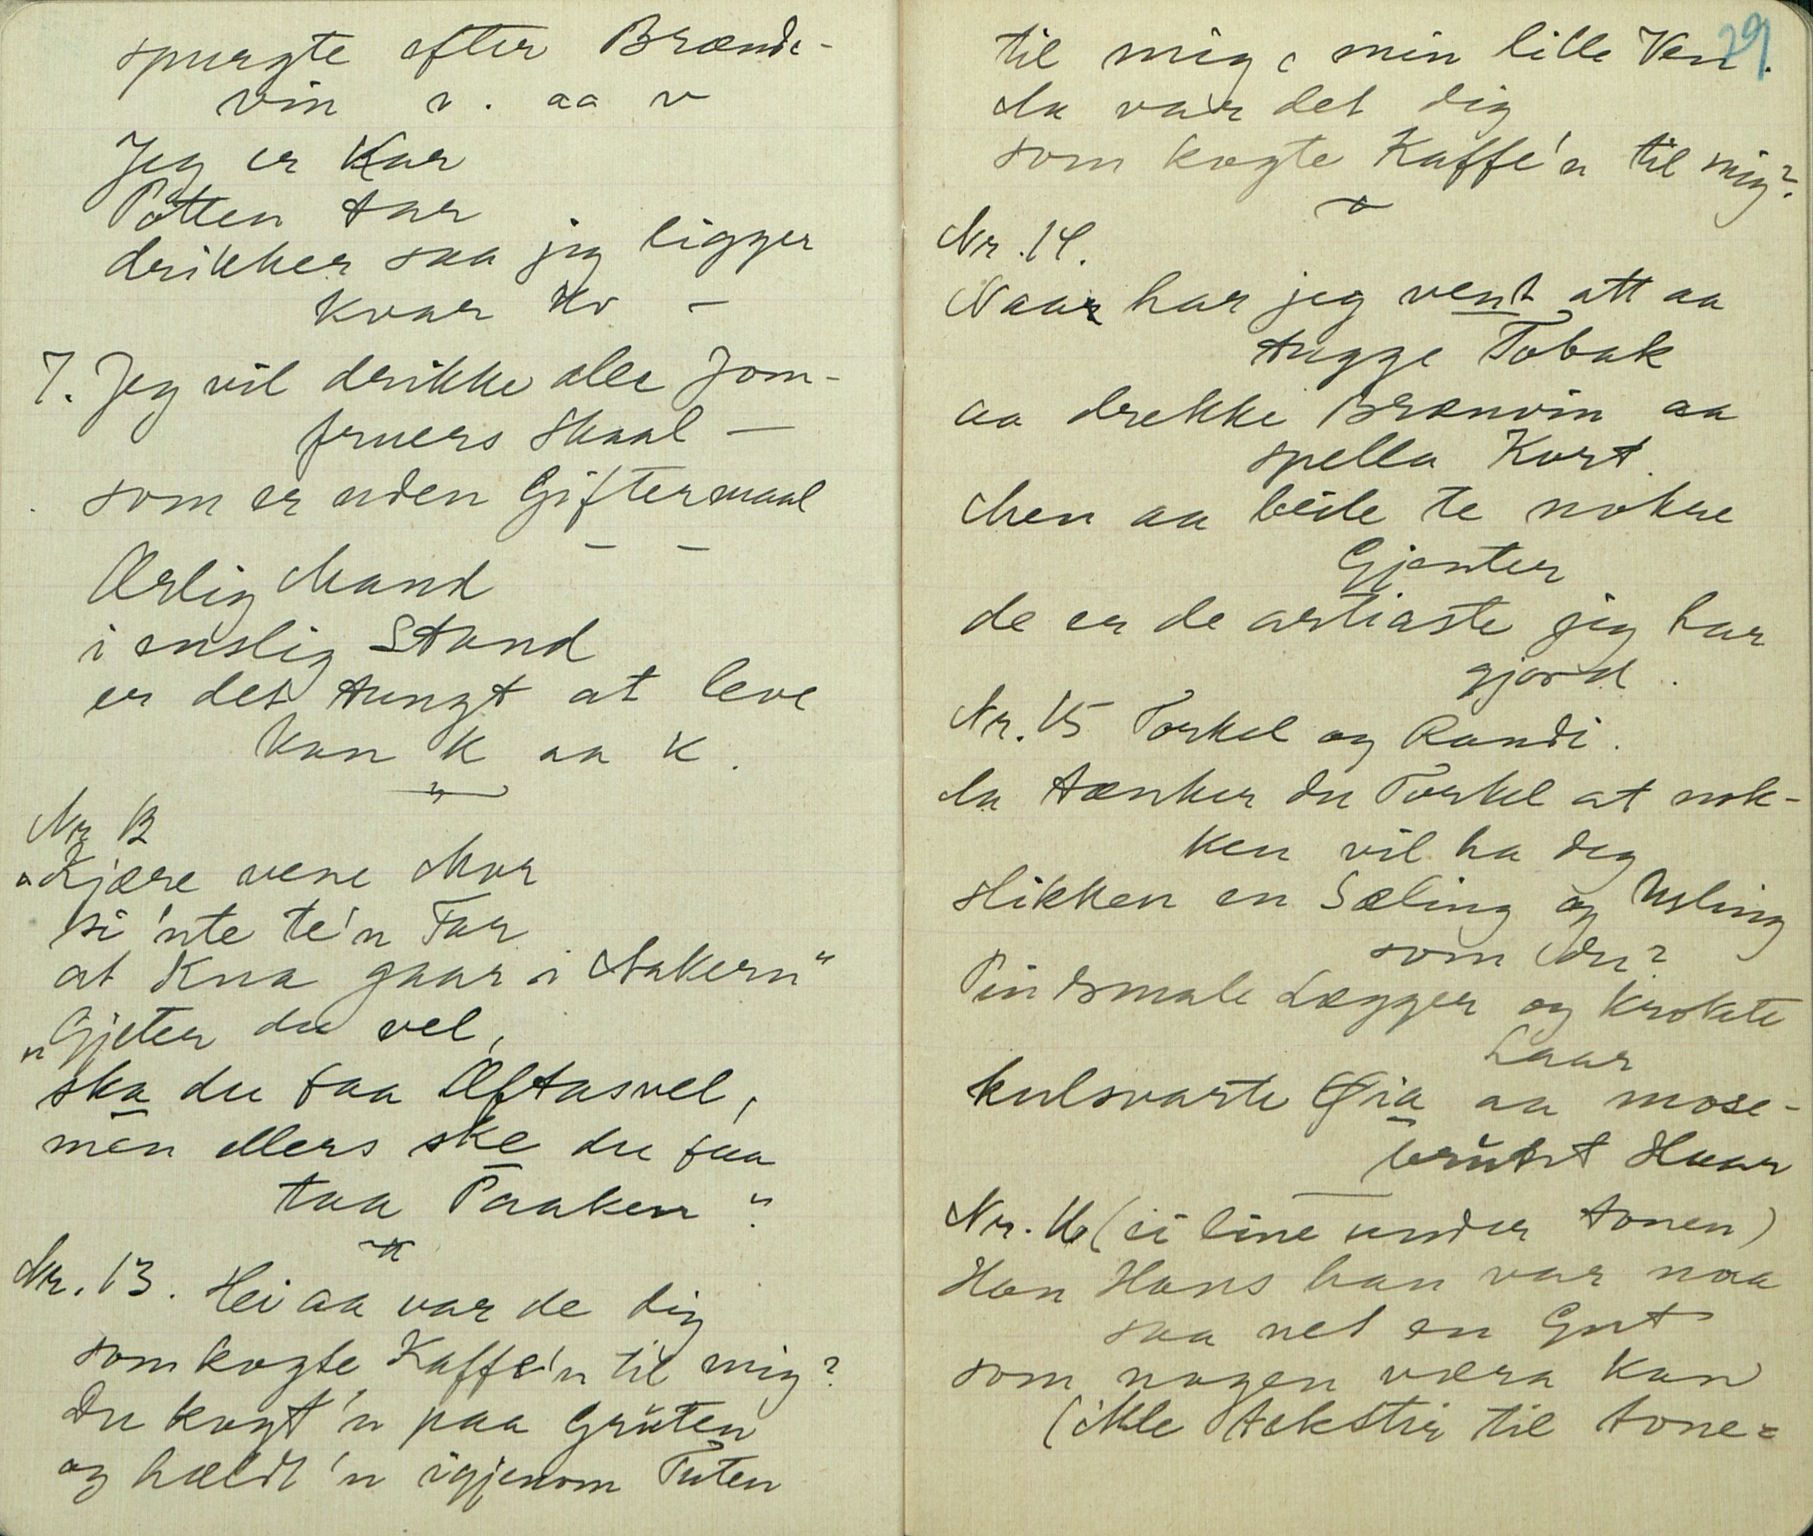 spurgte efter Brænde-
vin v. aa v
Jeg er Kar
Potten tar
drikker saa jeg ligger
kvar Kv –
7. Jeg vil drikke alle Jom-
fruers Skaal —
som er uden Giftermaal
– –
Ærlig Mand
i enslig Stand
er det tungt at leve
kan K aa K.
Nr 12
"Kjære vene Mor
si 'nte te'n Far
at Kua gaar i Aakern"
"Gjeter du vel,
ska du faa Æftasvel,
men ellers ske du faa
taa Paaken"
Nr. 13. Hei aa var de dig
som kogte Kaffe'n til mig?
Du kogt'n paa Gruten
og hældt'n igjenom Tuten
29
til mig, min lille Ven.
Aa var det dig
som kogte Kaffe'n til mig?
Nr. 14.
Naar har jeg vent att aa
tugge Tobak
aa drekke Brænvin aa
spella Kort.
Men aa beile te nokre
Gjenter
de er de artiaste jeg har
gjord.
Nr. 15 Torkel og Randi.
Aa tænker du Torkel at nok-
ken vil ha deg
slikken en Sæling og Usling
som du?
Pindsmale Lægger og krokete
Laar
kulsvarte Øia aa mose-
brunt Haar
Nr. 16 (ei line under tonen)
Han Hans han var naa
saa net en Gut
som nogen væra kan
(ikle tekstir til tone=